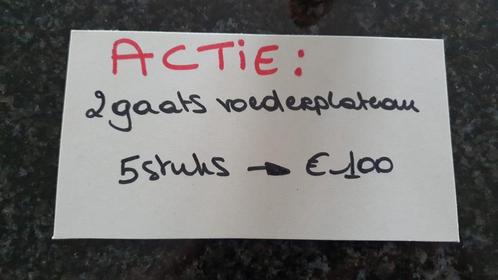 ACTiE:
2 gaats voederplateau
5 stuks → € 100